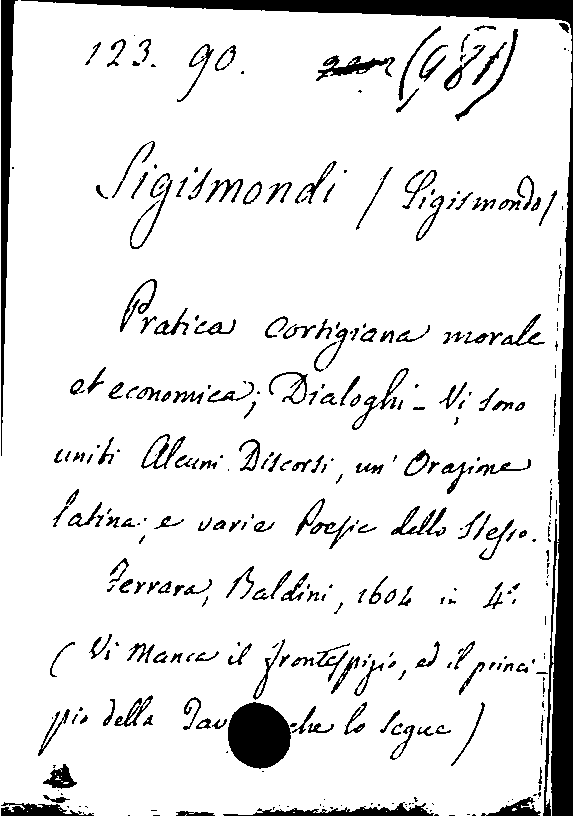 123. 90. (981)
Sigismondi / Sigismondo /
Pratica Cortigiana morale
et economica; Dialoghi - Vi sono
uniti Alcuni Discorsi, un' Orazione
latina, e varie Poesie dello stesso.
Ferrara, Baldini, 1604 in 4.º
( Vi Manca il frontespizio, ed il princi-
pio della Tav che lo Segue )